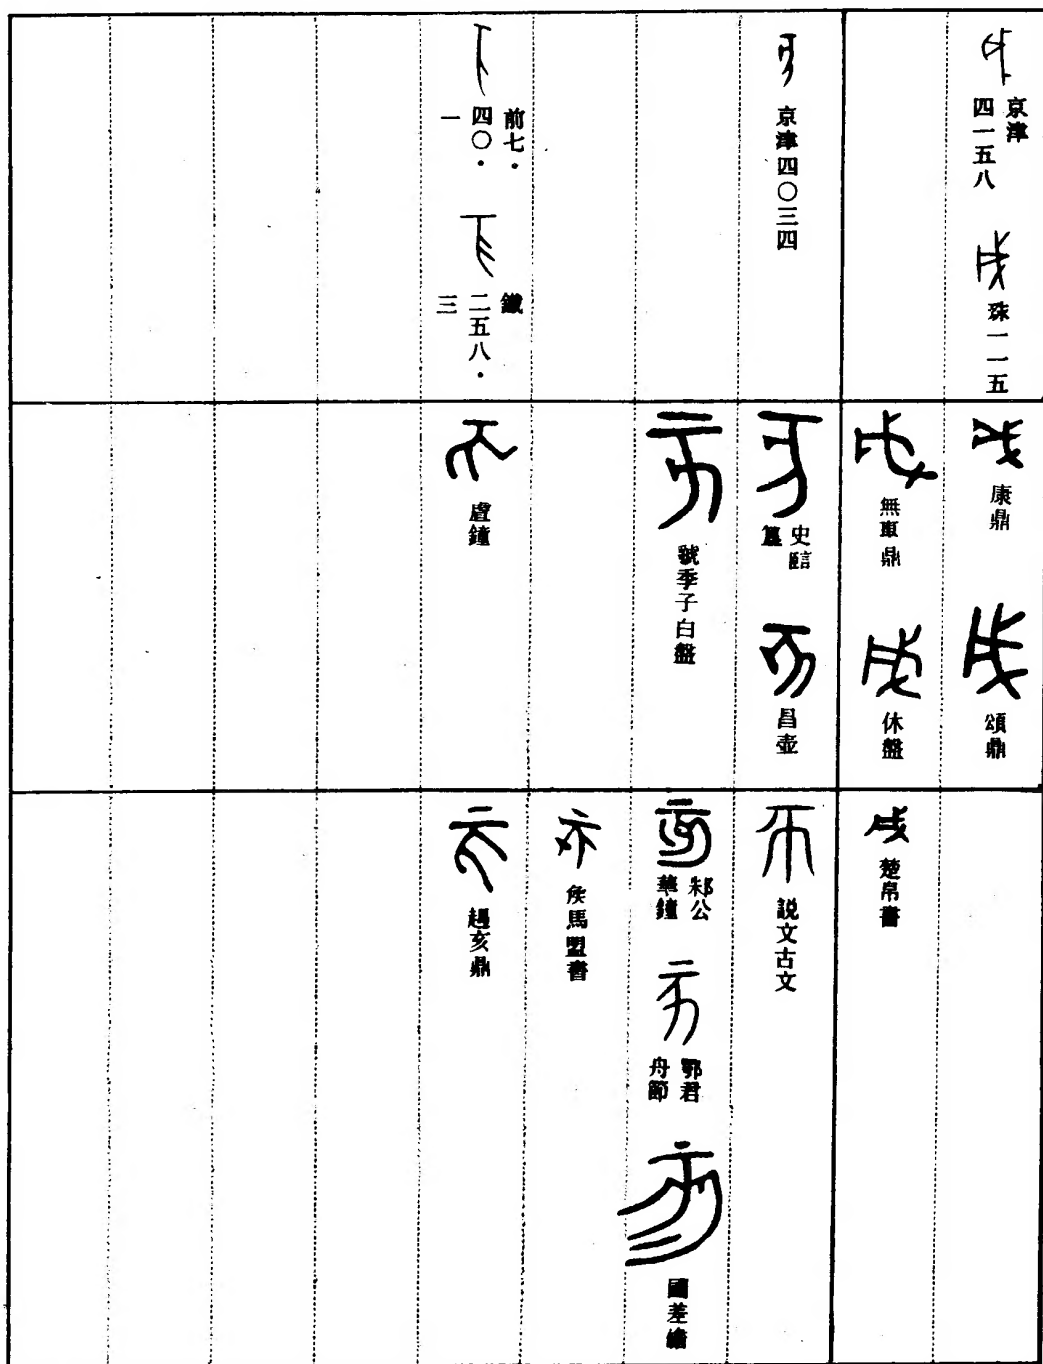 京津
四一五八
珠一一五
京津四〇三四
前七．
四〇．
一
鐵
二五八．
三
康鼎
頌鼎
無叀鼎
休盤
史䛒
簋
昌壺
虢季子白盤
虘鐘
楚帛書
説文古文
邾公
華鐘
鄂君
舟節
國差𦉜
侯馬盟書
趞亥鼎